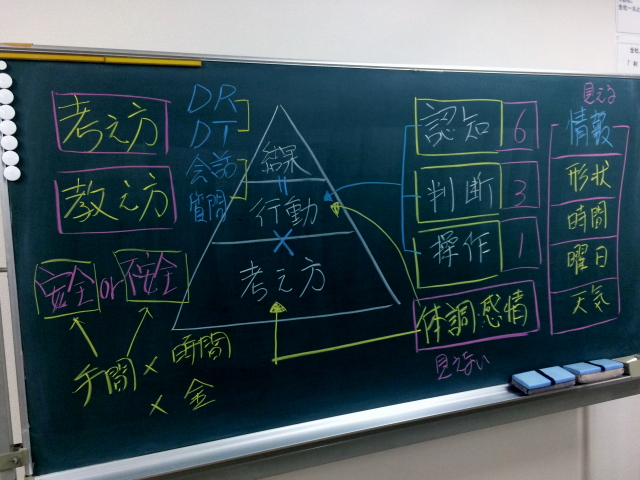 考え方
教え方
DR
DT
会話
質問
安全 or 不安全
手間 × 時間
× 金
結果
=
行動
×
考え方
認知 6
判断 3
操作 1
体調・感情
見えない
見える
情報
形状
時間
曜日
天気